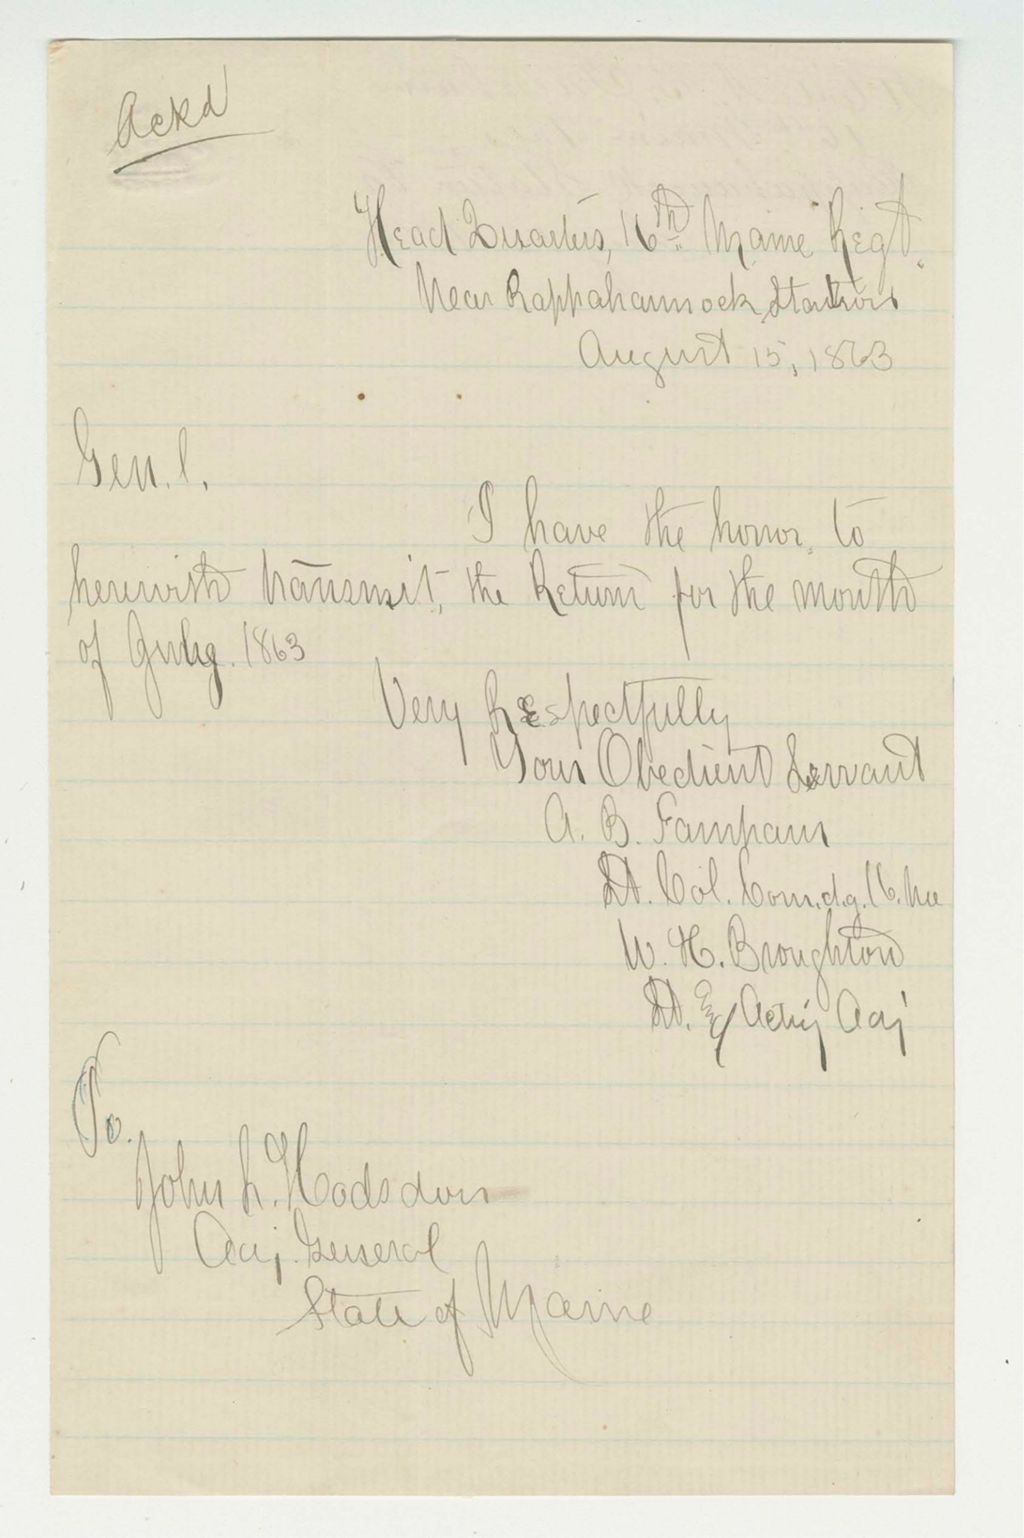 Ackd
Head Quarters, 16th Maine Regt.
Near Rappahannock Station
August 15, 1863
Gen.l.
I have the honor, to
herewith transmit, the Return for the month
of July. 1863
Very Respectfully
Your Obedient Servant
A. B. Farnham
Lt. Col. Com.d.g. 16. Me
W. H. Broughton
Lt. & Acting Adj
To.
John L. Hodsdon
Adj. General
State of Maine